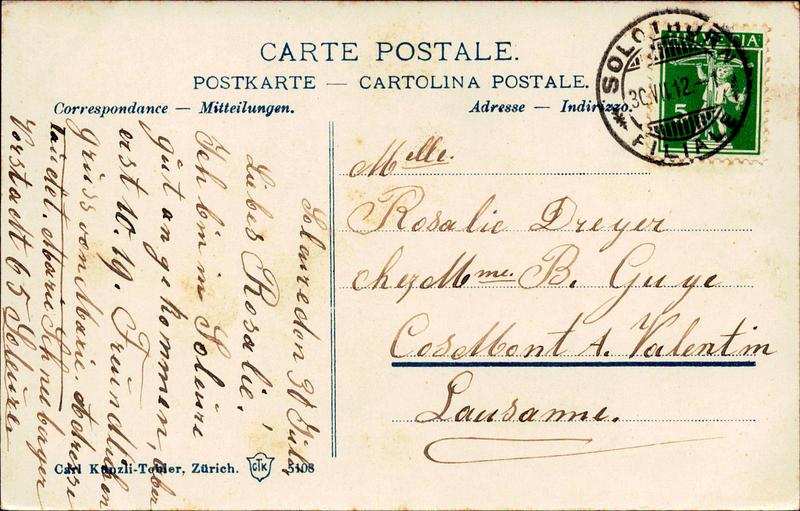 CARTE POSTALE.
POSTKARTE — CARTOLINA POSTALE.
Correspondance — Mitteilungen.
Adresse — Indirizzo.
HELVETIA
5
SOLOTHURN
30.VII.12.
FILIALE
Melle.
Rosalie Dreyer
chez Mme. B. Guye
CosMont A. Valentin
Lausanne.
Soleure den 30 Juli,
Liebes Rosalie,
Ich bin in Soleure
gut angekommen, aber
erst 10.19. Freundlichen
Gruss von Marie. Adresse
Marie Schneeberger
Vorstadt 65 Soleure
Carl Künzli-Tobler, Zürich.
CTK
5108